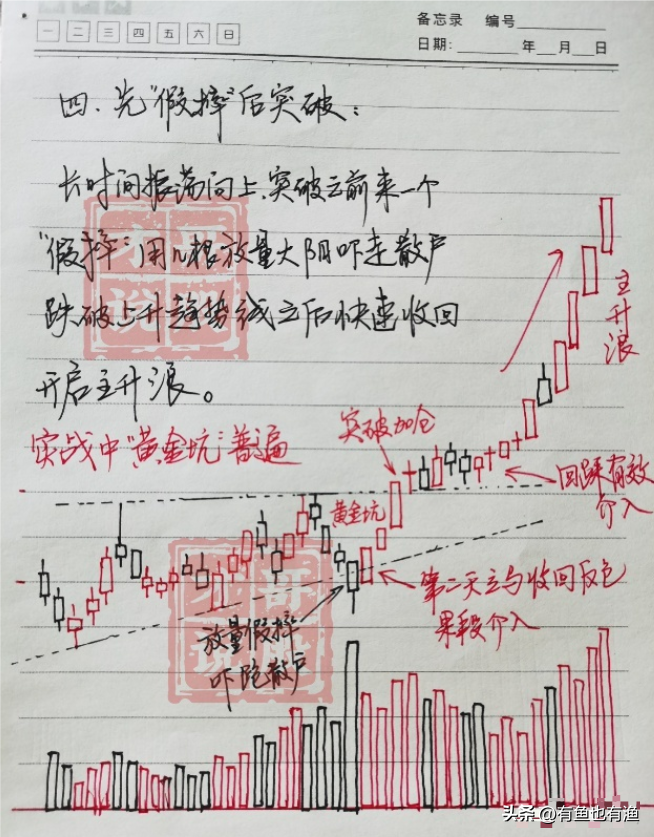 备忘录 编号
一 二 三 四 五 六 日
日期: 年 月 日
四.先“假摔”后突破:
长时间振荡向上,突破之前来一个
“假摔”用几根放量大阴吓走散户
跌破上升趋势线之后快速收回
开启主升浪。
实战中“黄金坑”普遍
突破加仓
主升浪
黄金坑
回踩有效
介入
第二天立马收回反包
果断介入
放量假摔
吓跑散户
头条 @有鱼也有渔